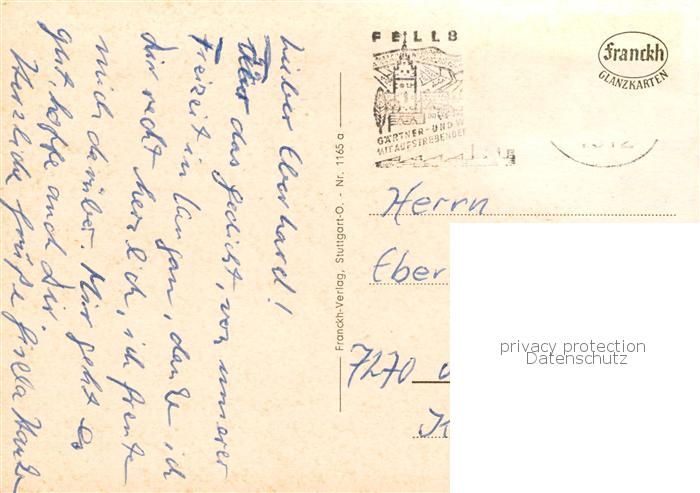 Lieber Eberhard!
Über das Gedicht, von unserer
Freizeit in Langau, danke ich
dir recht herzlich, ich freute
mich darüber. Mir geht es
gut, hoffe auch Dir.
Herzliche Grüße Gisela
Franckh-Verlag, Stuttgart-O. - Nr. 1165 a
FELLB
GÄRTNER- UND W
MIT AUFSTREBENDER
Franckh
GLANZKARTEN
Herrn
Eber
7270
privacy protection
Datenschutz